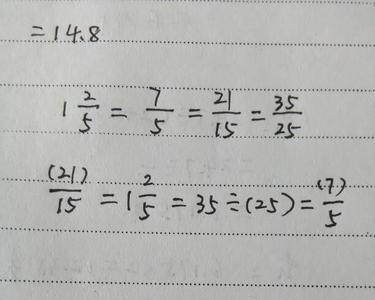 =14.8
1 2/5 = 7/5 = 21/15 = 35/25
(21)/15 = 1 2/5 = 35÷(25) = (7)/5